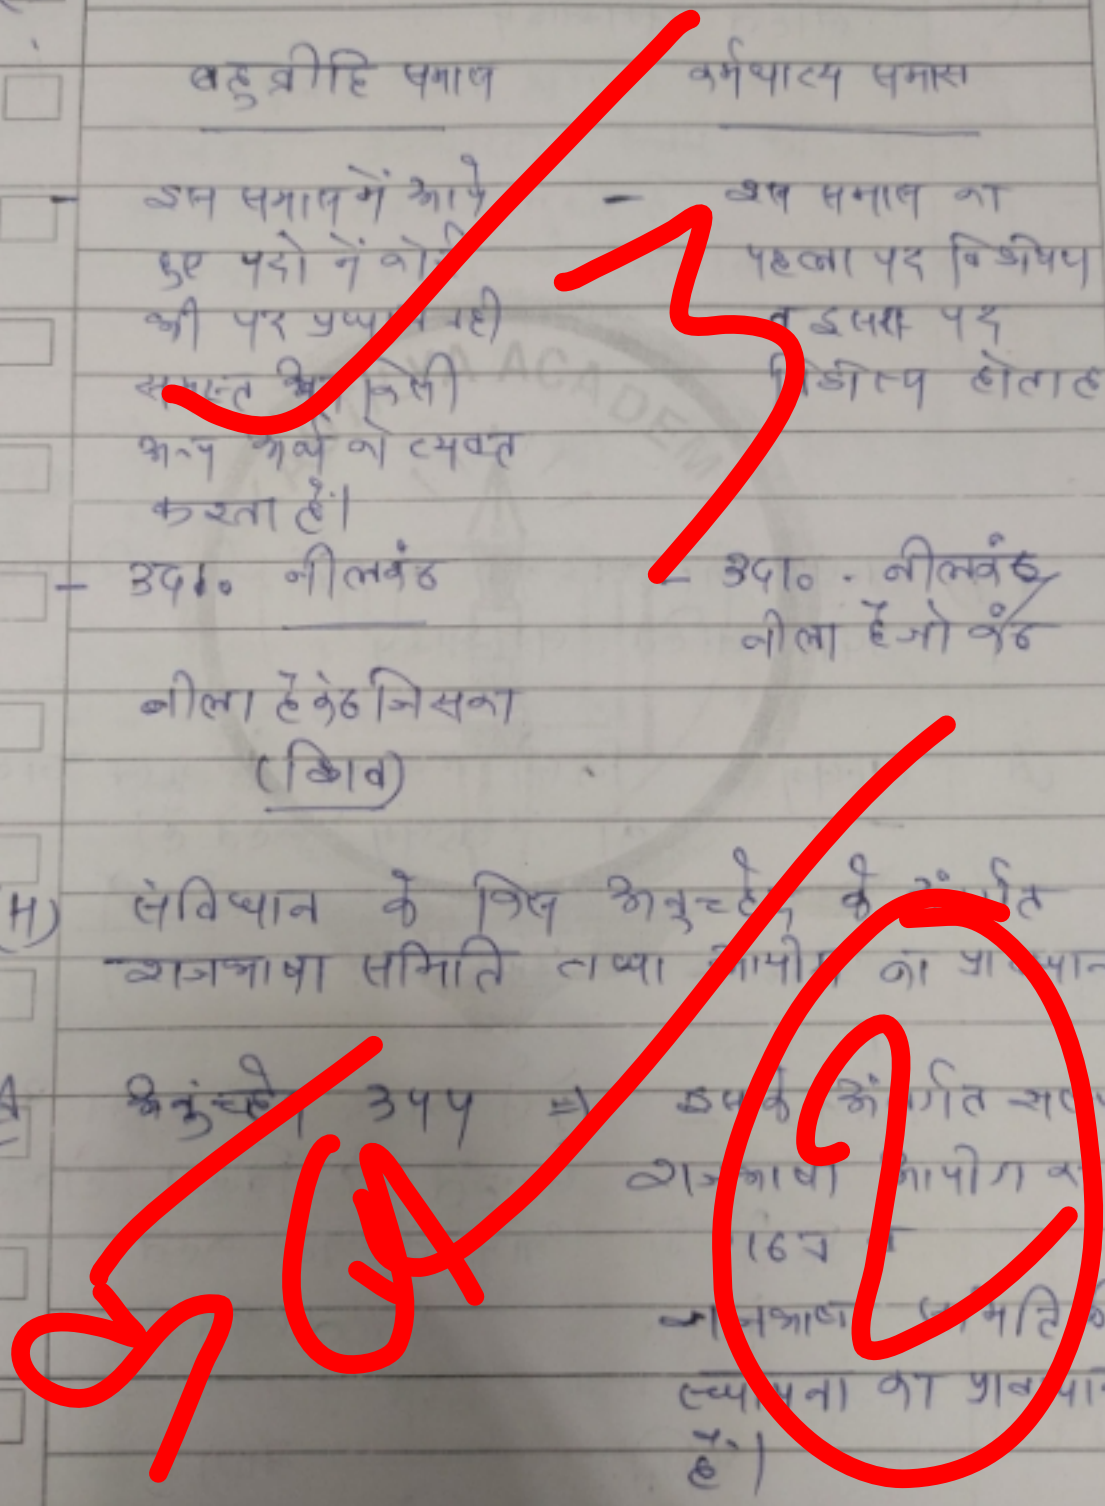 बहुव्रीहि समास
कर्मधारय समास
- इस समास में आये
हुए पदो में कोई
भी पद प्रधान नही
समस्त किसी
अन्य अर्थ को व्यक्त
करता है।
- उदा० नीलकंठ
नीला है कंठ जिसका
(शिव)
- इस समास का
पहला पद विशेषण
व दूसरा पद
विशेष्य होता है
- उदा० - नीलकंठ
नीला है जो कंठ
(H) संविधान के किस अनुच्छेद के अंतर्गत
राजभाषा समिति तथा आयोग का प्रावधान
A अनुच्छेद 344 ⇒ इसके अंतर्गत
राजभाषा आयोग
गठन
राजभाषा समिति
स्थापना का प्रावधान
है।
ACADEM
3
2